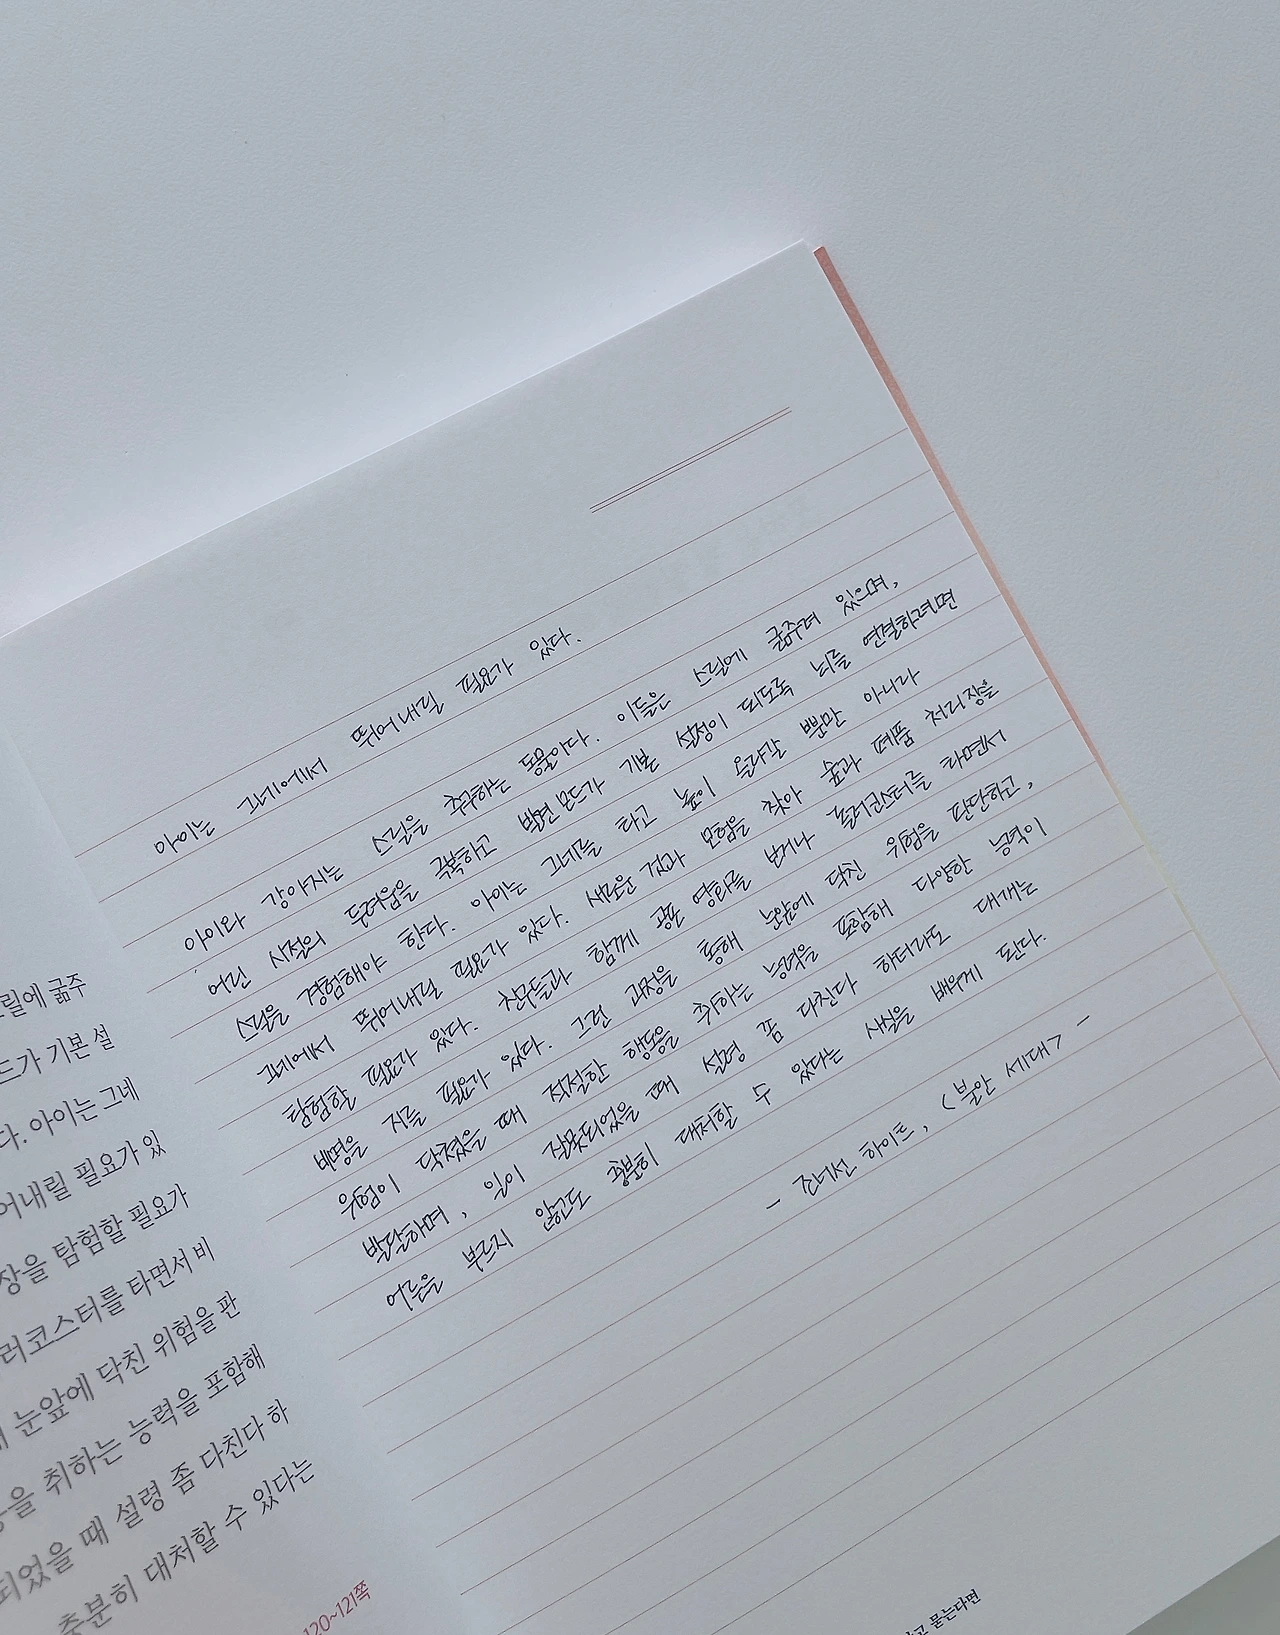 아이는 그네에서 뛰어내릴 필요가 있다.
아이와 강아지는 스릴을 추구하는 동물이다. 이들은 스릴에 굶주려 있으며,
어린 시절의 두려움을 극복하고 발견 모드가 기본 설정이 되도록 뇌를 연결하려면
스릴을 경험해야 한다. 아이는 그네를 타고 높이 올라갈 뿐만 아니라
그네에서 뛰어내릴 필요가 있다. 새로운 것과 모험을 찾아 숲과 폐품 처리장을
탐험할 필요가 있다. 친구들과 함께 공포 영화를 보거나 롤러코스터를 타면서
비명을 지를 필요가 있다. 그런 과정을 통해 눈앞에 닥친 위험을 판단하고,
위험이 닥쳤을 때 적절한 행동을 취하는 능력을 포함해 다양한 능력이
발달하며, 일이 잘못되었을 때 설령 좀 다친다 하더라도 대개는
어른을 부르지 않고도 충분히 대처할 수 있다는 사실을 배우게 된다.
- 조너선 하이트, <불안 세대> -
릴에 굶주
드가 기본 설
다. 아이는 그네
어내릴 필요가 있
장을 탐험할 필요가
러코스터를 타면서 비
눈앞에 닥친 위험을 판
을 취하는 능력을 포함해
되었을 때 설령 좀 다친다 하
충분히 대처할 수 있다는
120~121쪽
묻는다면